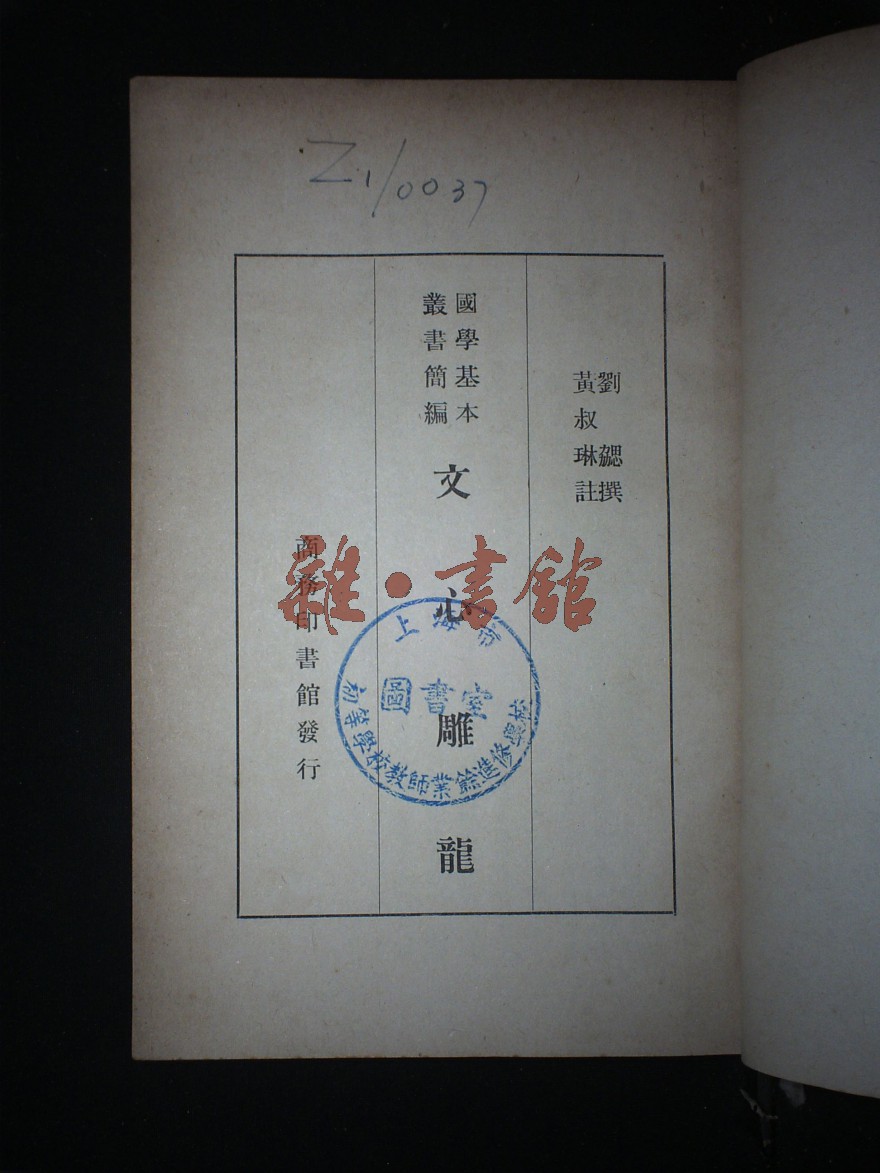 Z1/0037
劉勰撰
黃叔琳註
國學基本
叢書簡編
文心雕龍
商務印書館發行
上海市
圖書室
初等學校教師業餘進修學校
雜·書館